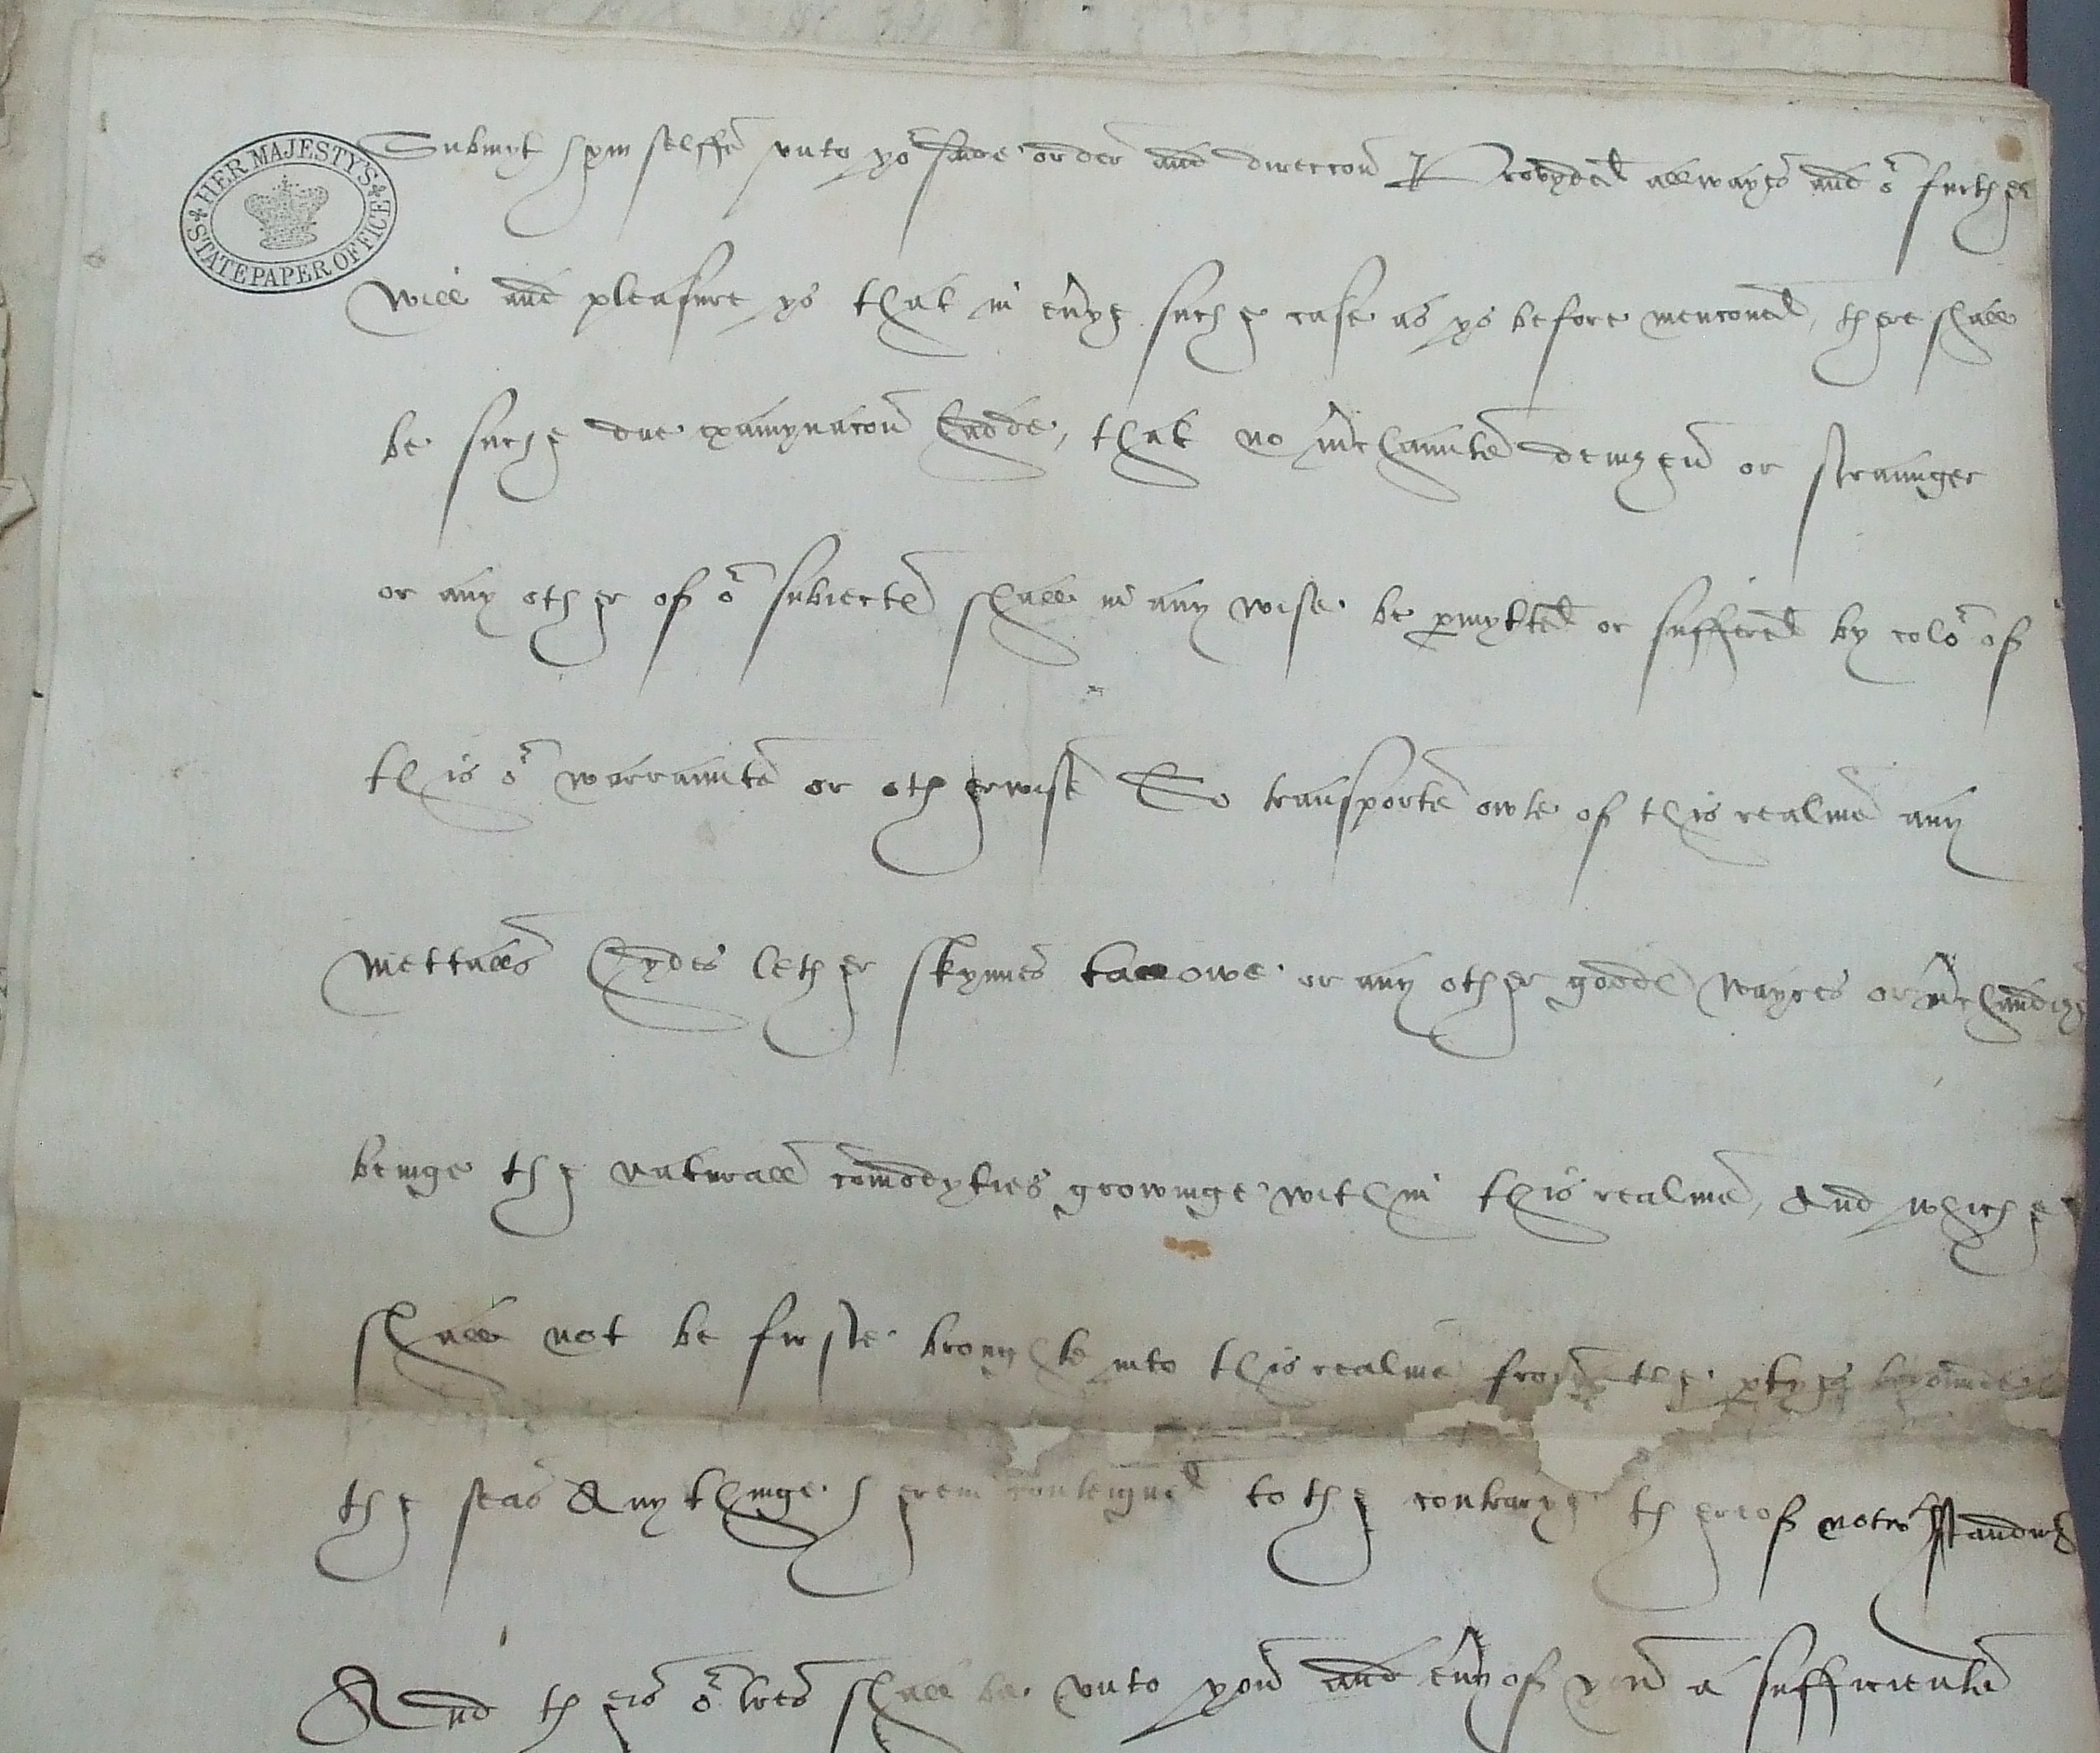 HER MAJESTY'S STATE PAPER OFFICE
Submyt hym selffe vnto yor saide order and direccon Provyded allwayes and or further
will and pleasure ys that in evrye suche case as ys before menconed, there shall
be suche due examynacon hadde, that no mrchaunte denizen or straunger
or any other of or subiectes shall in any wise be pmytted or suffered by color of
this or warraunte or otherwise To transporte owte of this realme any
mettalls hydes lether skynnes tallowe or any other goodes wayres or mrchandize
beinge the naturall comodyties growinge within this realme, And whiche
shall not be firste broughte into this realme from the ptyes beyonde
the seas Any thinge herein conteigned to the contrarye thereof notwthstandinge
And theis or lres shall be vnto you and evry of you a sufficiente